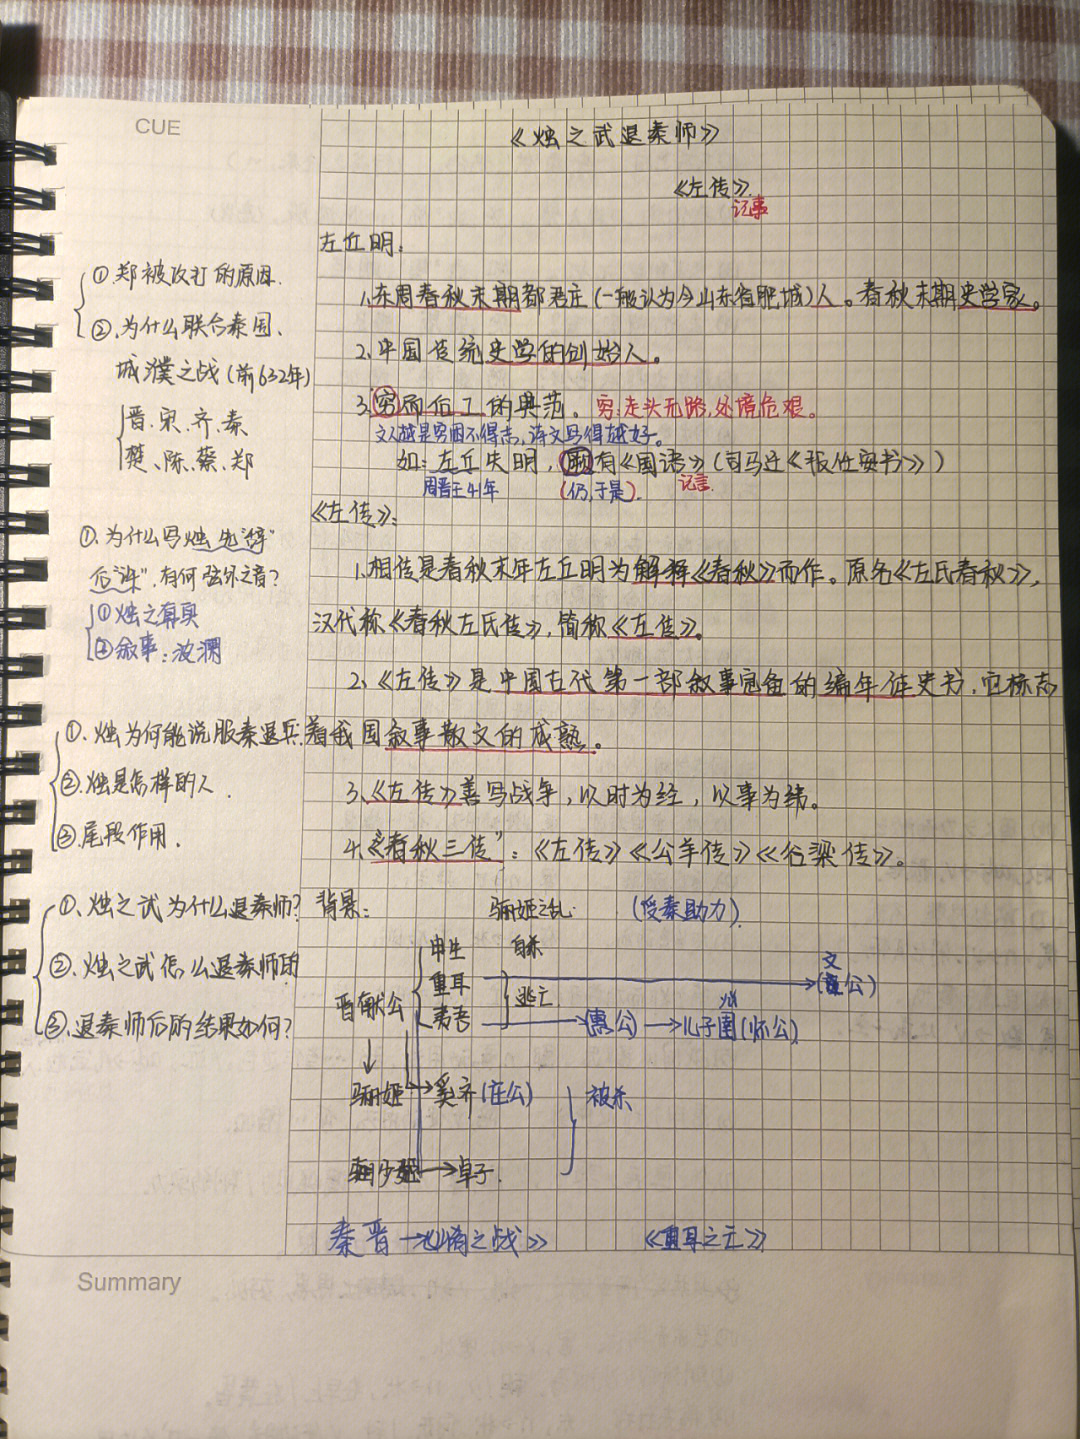 CUE
《烛之武退秦师》
《左传》
记事
左丘明.
①.郑被攻打的原因.
②.为什么联合秦国、
城濮之战(前632年)
晋、宋、齐、秦
楚、陈、蔡、郑
1.东周春秋末期都君庄(一般认为今山东省肥城)人。春秋末期史学家。
2.中国传统史学的创始人。
3.穷而后工的典范。穷:走头无路,处境危艰。
文人越是穷困不得志,诗文写得越好。
如:左丘失明,厥有《国语》(司马迁《报任安书》)
(仍,于是).
记言.
《左传》:
①.为什么写烛先“辞”
后“许”,有何弦外之音?
①烛之真实
②叙事:波澜
1.相传是春秋末年左丘明为解释《春秋》而作。原名《左氏春秋》,
汉代称《春秋左氏传》,简称《左传》。
2.《左传》是中国古代第一部叙事完备的编年体史书,它标志
着我国叙事散文的成熟。
3.《左传》善写战争,以时为经,以事为纬。
4.“春秋三传”:《左传》《公羊传》《谷梁传》。
①.烛为何能说服秦退兵.
②.烛是怎样的人.
③.尾段作用.
①.烛之武为什么退秦师?
②.烛之武怎么退秦师的
③.退秦师后的结果如何?
背景:
骊姬之乱.
(受秦助力).
申生 自杀
重耳
夷吾
逃亡
文
公)
晋献公
(惠公)→儿子圉(怀公)
骊姬→奚齐(庄公)
被杀
→卓子.
秦晋→《崤之战》
《重耳之亡》
Summary